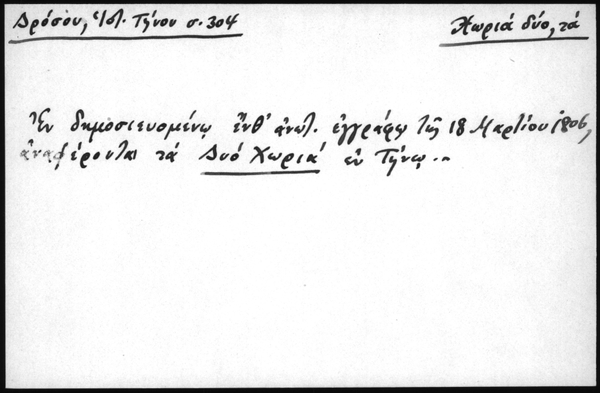 Δρόσου, Ἱστ. Τήνου σ. 304
Χωριά δύο, τά
Ἐν δημοσιευομένῳ ἔνθ' ἀνωτ. ἐγγράφῳ τῆς 18 Μαρτίου 1806,
ἀναφέρονται τά Δυό Χωριά ἐν Τήνῳ..